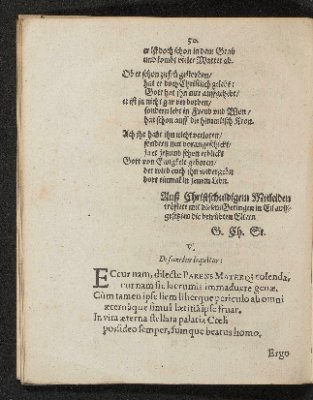 50.
er ist doch schon in dem Grab
und kombt
Ob er schon zu frü gestorben/
hat er doch Christlich gelebt:
Gott hat ihn nur auffgehebt/
er ist ja nicht gar verdorben/
sondern lebt in Freud und Won/
hat schon auff die himmlisch Kron.
Ach ihr habt ihn nicht verloren/
sondern nur vorangeschickt/
ja er jetzund schon erblickt
Gott von Ewigkeit geboren/
der wird euch ihn wider gebn
dort einmal in jenem Lebn.
Auß Christschuldigem Mitleiden
tröstete mit diesem Geringen in Eil auff-
gesetzten die betrübten Eltern
G. Ch. St.
V.
De funere loquitur:
ECcur nam, dilecte PARENS MATERQ; colenda,
cur nam sic lacrumis immaduere genæ.
Cùm tamen ipse siem liberque periculo ab omni
æternâque simul lætitiâ ipse fruar.
In vita æterna stellata palatia Cœli
possideo semper, sumque beatus homo.
Ergo